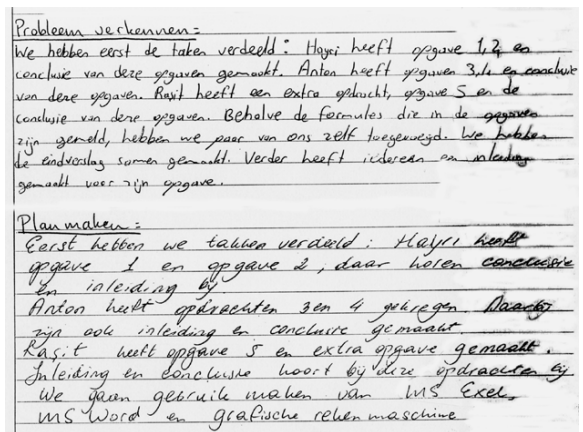 Probleem verkennen:
We hebben eerst de taken verdeeld: Hayri heeft opgave 1,2 en
conclusie van deze opgaven gemaakt. Anton heeft opgaven 3,4 en conclusie
van deze opgaven. Raşit heeft een extra opdracht, opgave 5 en de
conclusie van deze opgaven. Behalve de formules die in de opgaven
zijn gemeld, hebben we paar van ons zelf toegevoegd. We hebben
de eindverslag samen gemaakt. Verder heeft iedereen een inleiding
gemaakt voor zijn opgave.
Plan maken:
Eerst hebben we takken verdeeld: Hayri heeft
opgave 1 en opgave 2, daar horen conclusie
en inleiding bij
Anton heeft opdrachten 3 en 4 gekregen. Daarbij
zijn ook inleiding en conclusie gemaakt.
Rasit heeft opgave 5 en extra opgave gemaakt.
Inleiding en conclusie hoort bij deze opdrachten bij
We gaan gebruik maken van MS Exel,
MS Word en grafische rekenmaschine